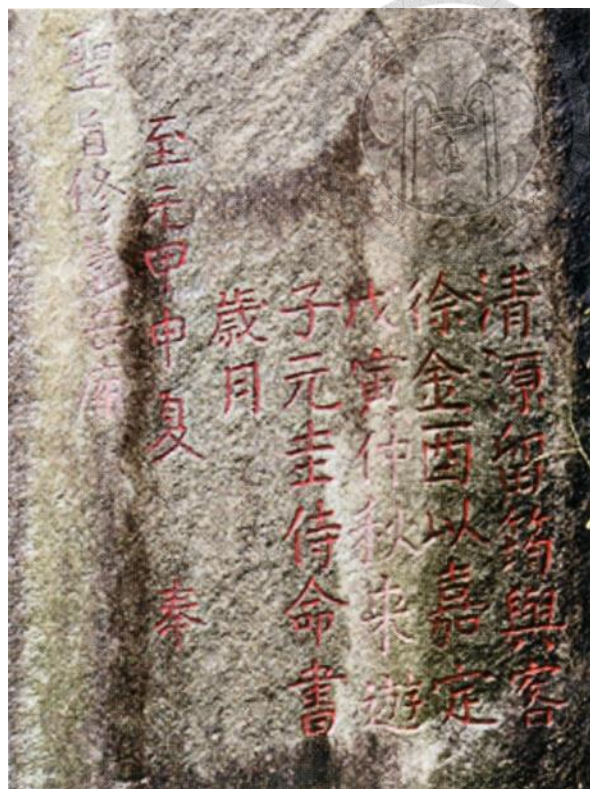 清源留筠與客
徐金酉以嘉定
戊寅仲秋来遊
子元圭侍命書
歲月
至元甲申夏　奉
聖旨修